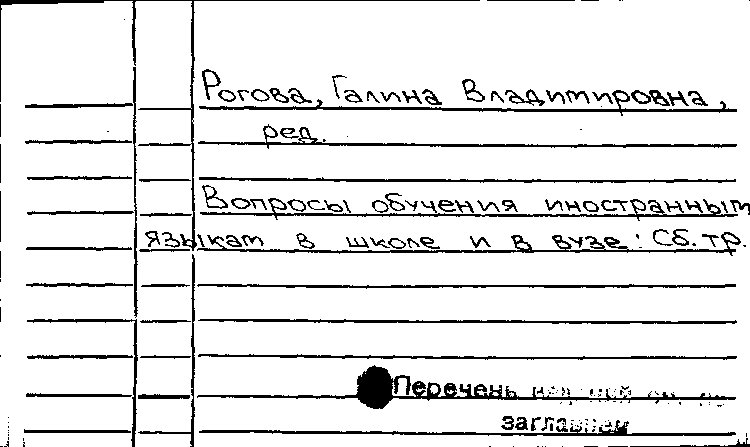 Рогова, Галина Владимировна,
ред.
Вопросы обучения иностранным
языкам в школе и в вузе: Сб. тр.
Перечень
заглавием